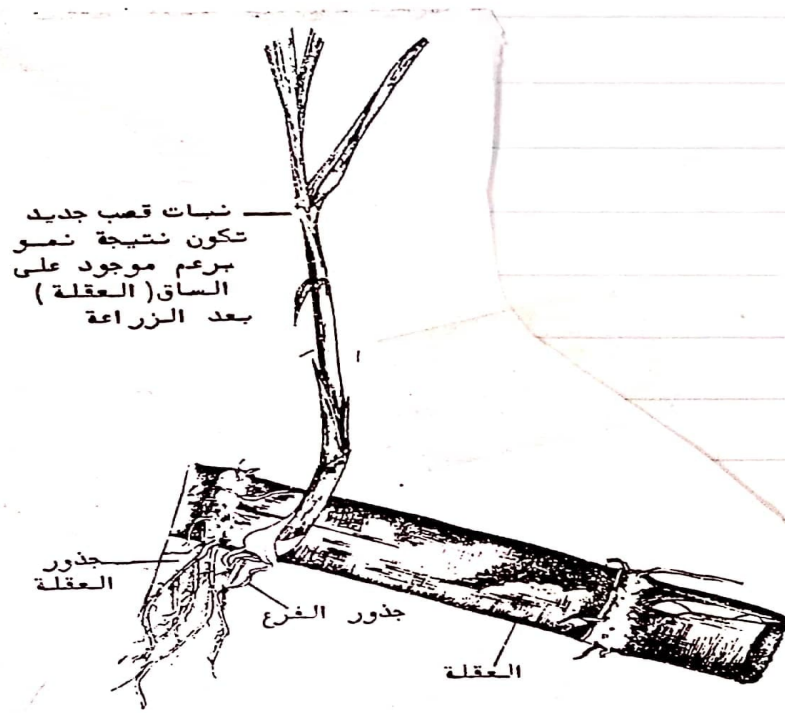 نبات قصب جديد
تكون نتيجة نمو
برعم موجود على
الساق (العقلة)
بعد الزراعة
جذور
العقلة
جذور الفرع
العقلة